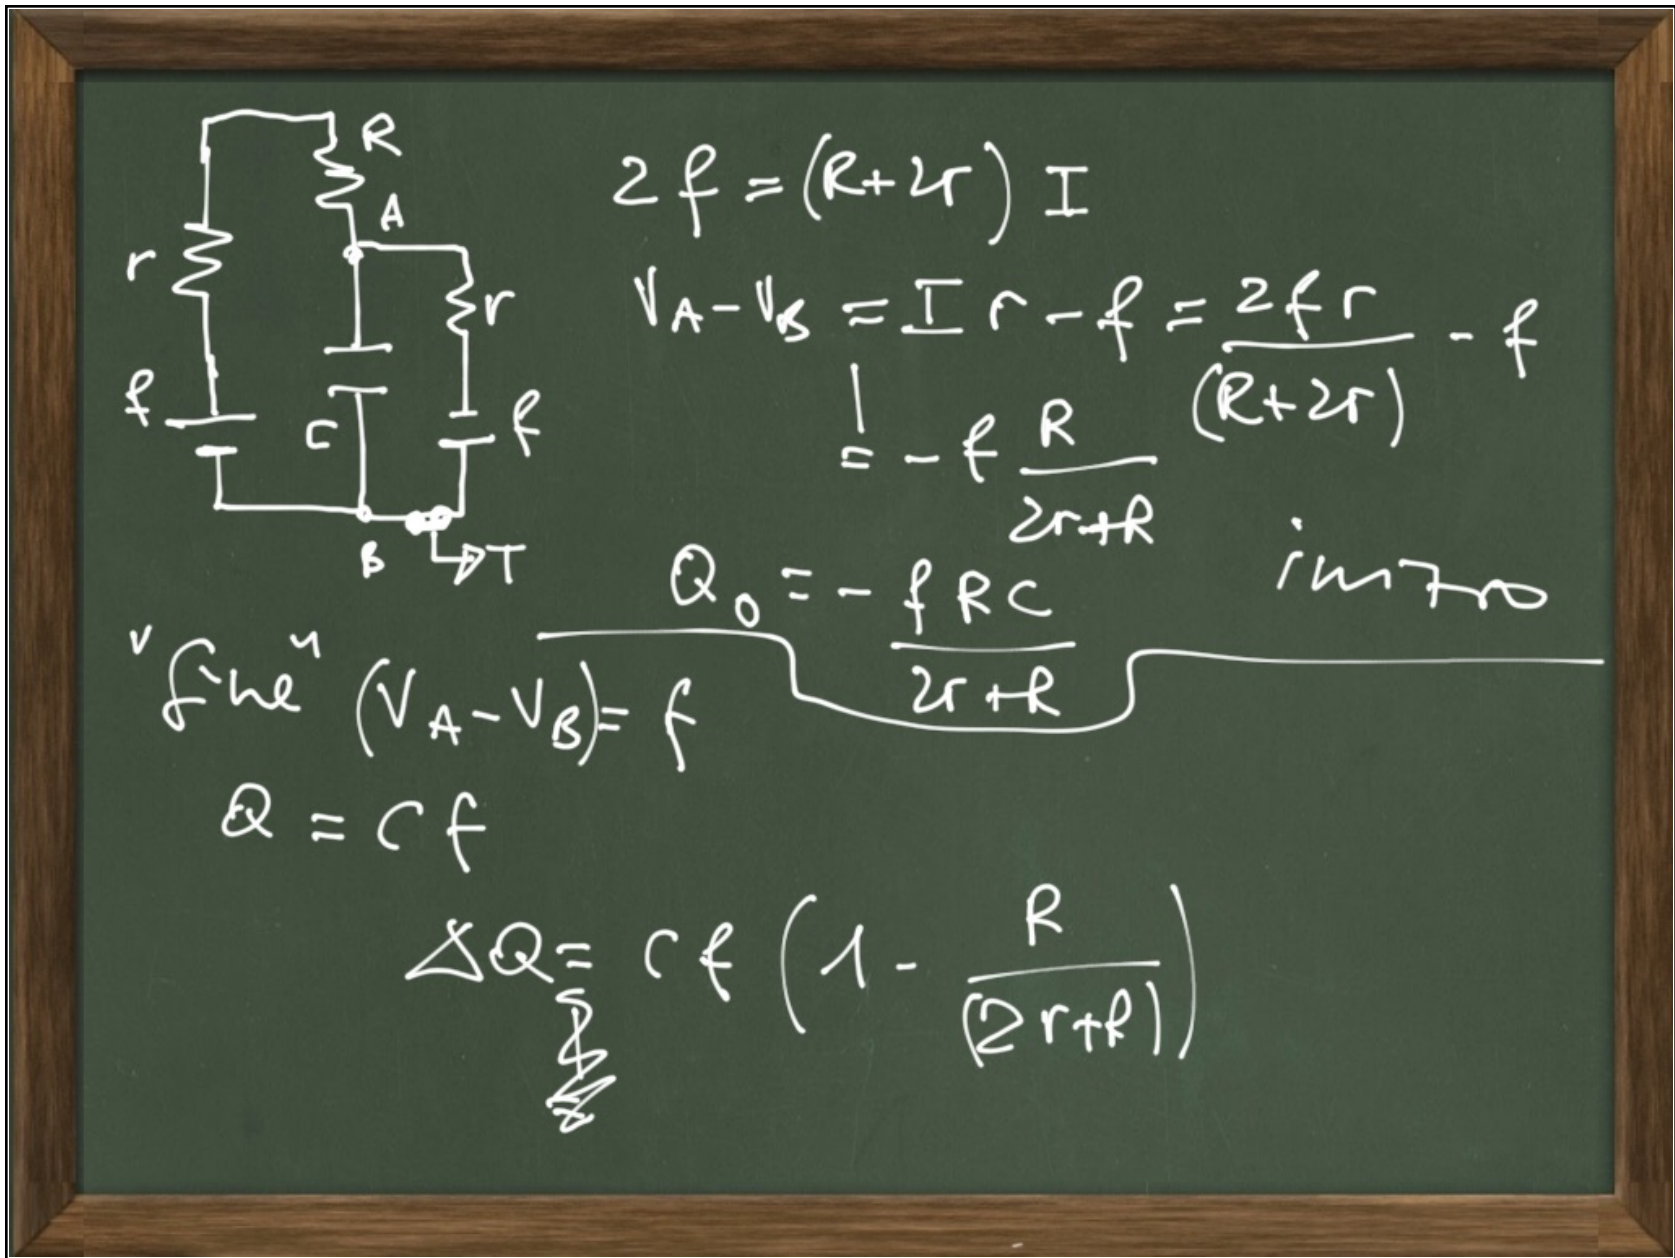 R
A
r
r
f
C
f
B
T
2f = (R+2r) I
V_A - V_B = I r - f = \frac{2fr}{(R+2r)} - f
= - f \frac{R}{2r+R}
Q_0 = - \frac{fRC}{2r+R}
"fine" (V_A - V_B) = f
Q = Cf
ΔQ = Cf (1 - \frac{R}{(2r+R)})